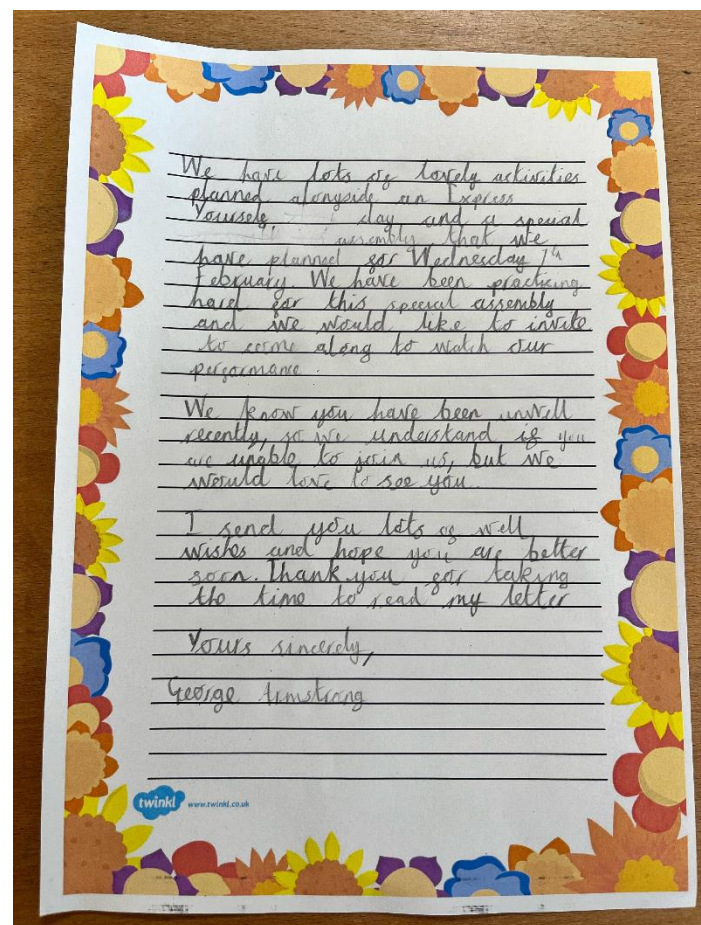 We have lots of lovely activities
planned alongside an Express
Yourself day and a special
assembly that we
have planned for Wednesday 7th
February. We have been practicing
hard for this special assembly
and we would like to invite
to come along to watch our
performance.
We know you have been unwell
recently, so we understand if you
are unable to join us, but we
would love to see you.
I send you lots of well
wishes and hope you are better
soon. Thank you for taking
the time to read my letter
Yours sincerely,
George Armstrong
twinkl www.twinkl.co.uk